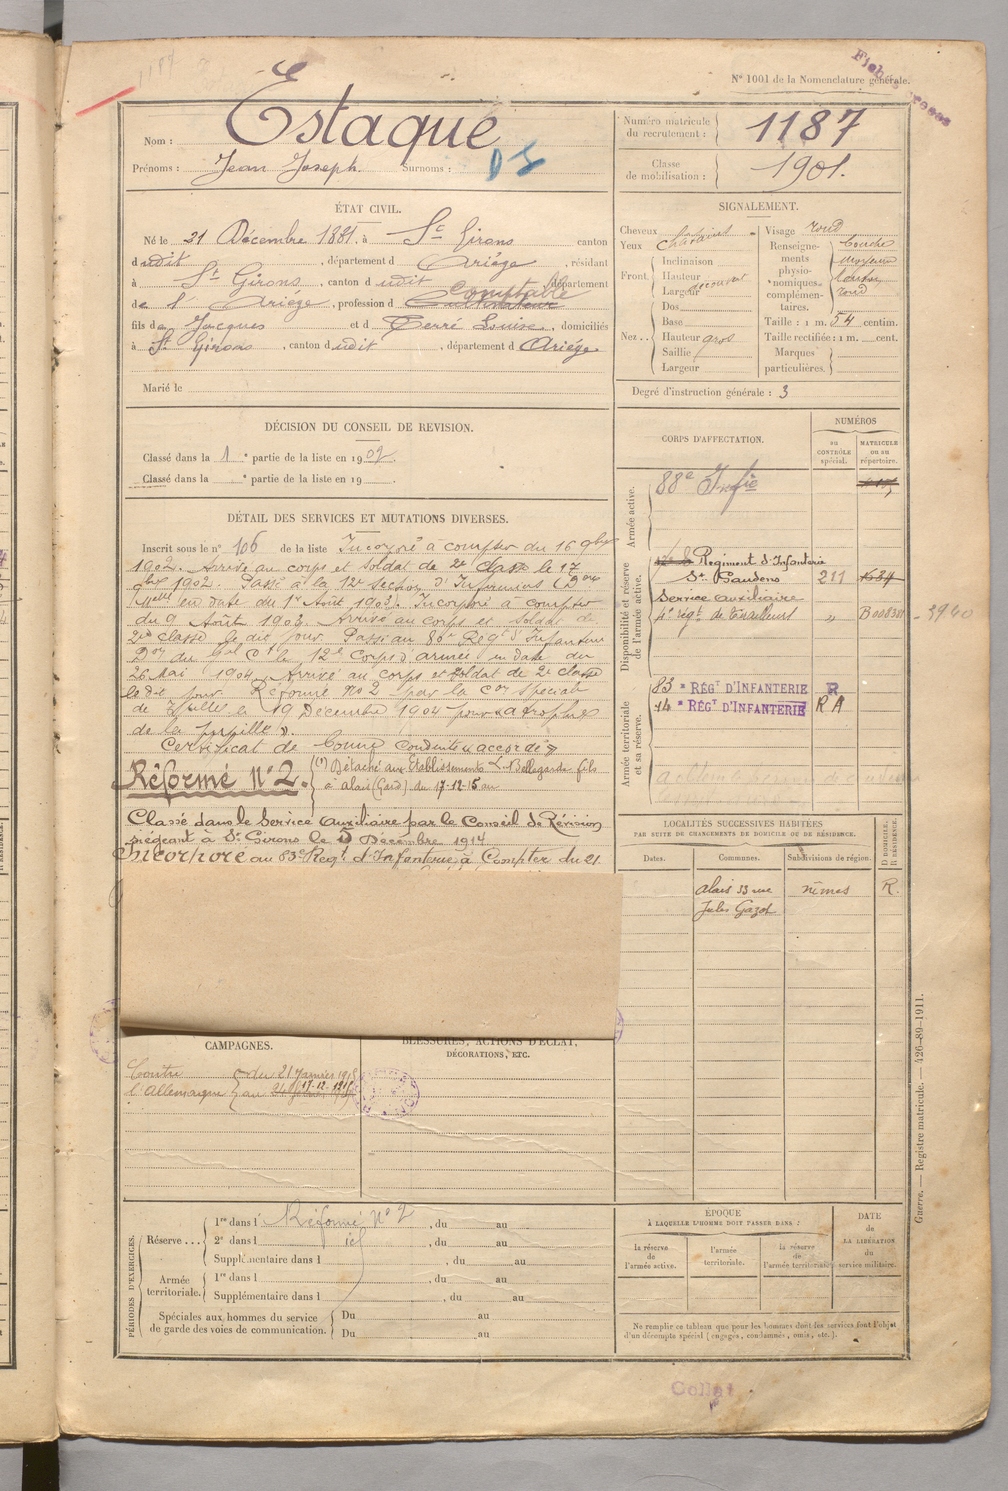 N° 1001 de la Nomenclature générale.
Nom : Estaque
Prénoms : Jean Joseph. Surnoms :
Numéro matricule du recrutement : 1187
Classe de mobilisation : 1901.
ÉTAT CIVIL.
Né le 21 Décembre 1881, à St Girons canton
dudit, département d Ariège, résidant
à St Girons, canton dudit département
de l' Ariége, profession d Comptable
fils de Jacques et d Terré Louise, domiciliés
à St Girons, canton dudit, département d Ariége
Marié le
SIGNALEMENT.
Cheveux châtains
Yeux
Front. Inclinaison
Hauteur découvert
Largeur
Nez Dos
Base
Hauteur gros
Saillie
Largeur
Visage rond
Renseignements physionomiques complémentaires. bouche moyenne menton rond
Taille : 1 m. 54 centim.
Taille rectifiée : 1 m. cent.
Marques particulières.
Degré d'instruction générale : 3
DÉCISION DU CONSEIL DE REVISION.
Classé dans la 1e partie de la liste en 1902.
Classé dans la e partie de la liste en 19
DÉTAIL DES SERVICES ET MUTATIONS DIVERSES.
Inscrit sous le n° 106 de la liste Incorporé à compter du 16 9bre
1902. Arrivé au corps et soldat de 2e classe le 17
9bre 1902. Passé à la 12e section d'Infirmiers (Don
Mlle en date du 1er Août 1903). Incorporé à compter
du 9 Août 1903. Arrivé au corps et soldat de
2e classe le dit jour. Passé au 80e Régt d'Infanterie
Don du Gal Ct le 12e Corps d'armée en date du
26 Mai 1904. Arrivé au corps et soldat de 2e classe
le dit jour. Réformé No 2 par la Con spéciale
de Tulle le 19 Décembre 1904 pour
de la pupille ».
Certificat de bonne conduite accordé
Réformé N° 2.
(1) Détaché aux Etablissements L. Bellegarde fils
à Alais (Gard) du 17-12-15 au
Classé dans le Service Auxiliaire par le Conseil de Révision
siégeant à St Girons le 5 Décembre 1914
Incorporé au 83e Régt d'Infanterie à Compter du 21
CORPS D'AFFECTATION.
NUMÉROS
au CONTRÔLE spécial.
MATRICULE ou au répertoire.
Armée active.
88e Infie
Disponibilité et réserve de l'armée active.
Régiment d'Infanterie
St Gaudens 211 1634
Service auxiliaire
4e régt de tirailleurs " B008381 - 3940
Armée territoriale et sa réserve.
83e RÉGT D'INFANTERIE R
14e RÉGT D'INFANTERIE RA
LOCALITÉS SUCCESSIVES HABITÉES
PAR SUITE DE CHANGEMENTS DE DOMICILE OU DE RÉSIDENCE.
Dates. Communes. Subdivisions de région. D DOMICILE, R RÉSIDENCE.
Alais 33 rue Nîmes R.
Jules Cazot
CAMPAGNES.
Contre l'Allemagne du 21 Janvier 1915
au 17-12-1915
BLESSURES, ACTIONS D'ÉCLAT,
DÉCORATIONS, ETC.
PÉRIODES D'EXERCICES.
Réserve... 1re dans l Réformé N° 2, du au
2e dans l id, du au
Supplémentaire dans l, du au
Armée territoriale. 1re dans l, du au
Supplémentaire dans l, du au
Spéciales aux hommes du service de garde des voies de communication. Du au
Du au
ÉPOQUE
À LAQUELLE L'HOMME DOIT PASSER DANS :
la réserve de l'armée active.
l'armée territoriale.
la réserve de l'armée territoriale.
DATE de LA LIBÉRATION du service militaire.
Ne remplir ce tableau que pour les hommes dont les services font l'objet
d'un décompte spécial (engagés, condamnés, omis, etc.).
Guerre. — Registre matricule. — 426-89-1911.